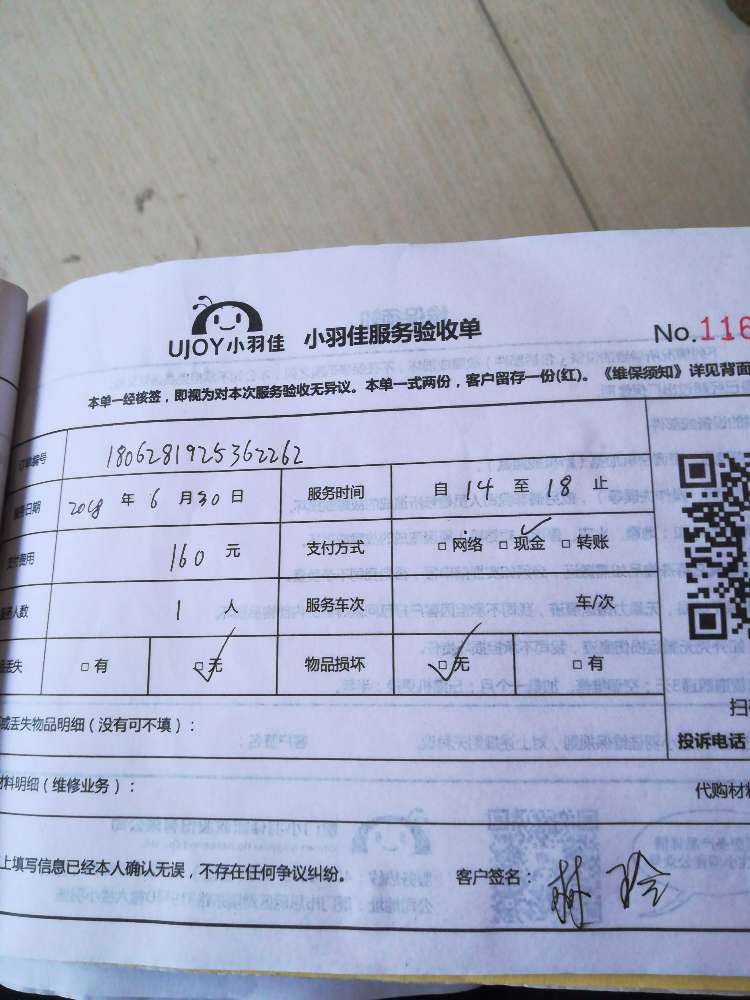 UJOY小羽佳 小羽佳服务验收单 No.116
本单一经核签，即视为对本次服务验收无异议。本单一式两份，客户留存一份(红)。《维保须知》详见背面
订单编号 1806281925362262
日期 2018 年 6 月 30 日 服务时间 自 14 至 18 止
费用 160 元 支付方式 □ 网络 □ 现金 □ 转账
人数 1 人 服务车次 车/次
丢失 □ 有 □ 无 物品损坏 □ 无 □ 有
或丢失物品明细（没有可不填）： 扫
投诉电话
材料明细（维修业务）： 代购材料
上填写信息已经本人确认无误，不存在任何争议纠纷。 客户签名： 林玲